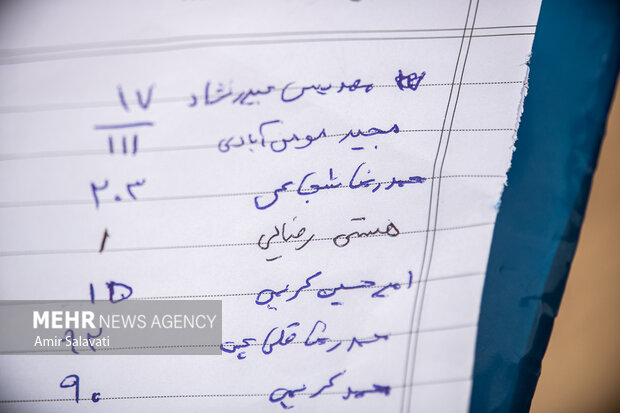 مهدیس حیدرنشاد ۱۷
مجید مومن آبادی ۱۱۱
حمیدرضا شجاعی ۲۰۳
هستی رضائی ۱
امیرحسین کریمی ۱۵
حمیدرضا قلی ۹۲
محمد کریمی ۹۰
MEHR NEWS AGENCY
Amir Salavati